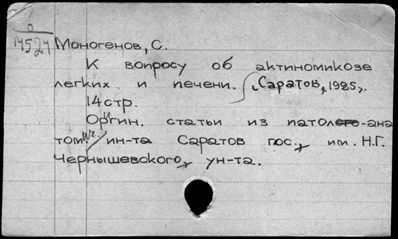 0
14524 Моногенов, С.
К вопросу об актиномикозе
легких и печени. Саратов, 1925,
14 стр.
Оргин. статьи из патол-ана
томич. ин-та Саратов гос, им. Н.Г.
Чернышевского, ун-та.